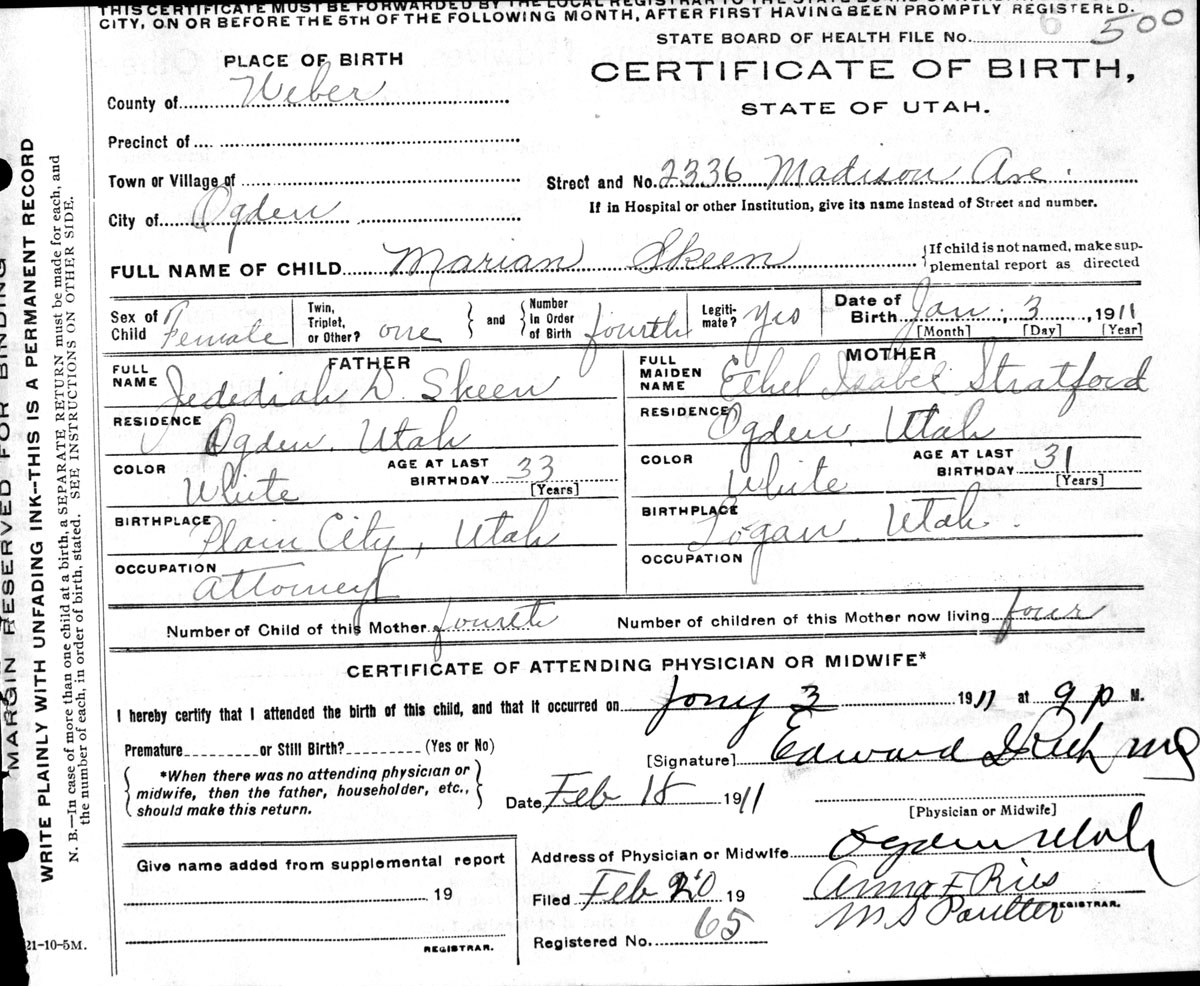 THIS CERTIFICATE MUST BE FORWARDED BY THE LOCAL REGISTRAR TO THE STATE BOARD OF HEALTH
CITY, ON OR BEFORE THE 5TH OF THE FOLLOWING MONTH, AFTER FIRST HAVING BEEN PROMPTLY REGISTERED.
STATE BOARD OF HEALTH FILE No. 6 500
PLACE OF BIRTH
CERTIFICATE OF BIRTH,
STATE OF UTAH.
County of Weber
Precinct of
Town or Village of
Street and No. 2336 Madison Ave.
City of Ogden
If in Hospital or other Institution, give its name instead of Street and number.
FULL NAME OF CHILD Marian Skeen
{If child is not named, make sup-
plemental report as directed
Sex of Child Female
Twin, Triplet, or Other? one } and { Number in Order of Birth fourth
Legiti-mate? Yes
Date of Birth Jan. 3, 1911
[Month] [Day] [Year]
FATHER
FULL NAME Jedediah D. Skeen
RESIDENCE Ogden, Utah
COLOR White
AGE AT LAST BIRTHDAY 33
[Years]
BIRTHPLACE Plain City, Utah
OCCUPATION Attorney
MOTHER
FULL MAIDEN NAME Ethel Isabel Stratford
RESIDENCE Ogden, Utah
COLOR White
AGE AT LAST BIRTHDAY 31
[Years]
BIRTHPLACE Logan, Utah.
OCCUPATION
Number of Child of this Mother fourth
Number of children of this Mother now living four
CERTIFICATE OF ATTENDING PHYSICIAN OR MIDWIFE*
I hereby certify that I attended the birth of this child, and that it occurred on Jany 3 1911 at 9 p M.
Premature or Still Birth? (Yes or No)
[Signature] Edward I Rich MD
{ *When there was no attending physician or
midwife, then the father, householder, etc.,
should make this return. }
Date Feb 18 1911
[Physician or Midwife]
Give name added from supplemental report
19
REGISTRAR.
Address of Physician or Midwife Ogden Utah
Filed Feb 20 19
Anna F Ries
M S Poulter
REGISTRAR.
Registered No. 65
21-10-5M.
MARGIN RESERVED FOR BINDING
WRITE PLAINLY WITH UNFADING INK—THIS IS A PERMANENT RECORD
N. B.—In case of more than one child at a birth, a SEPARATE RETURN must be made for each, and
the number of each, in order of birth, stated. SEE INSTRUCTIONS ON OTHER SIDE.